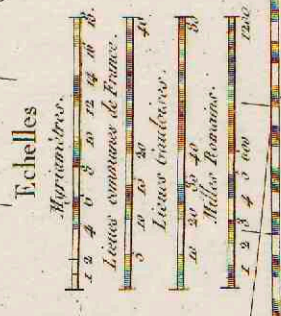 Echelles
Myriamètres.
1 2 4 6 8 10 12 14 16 18.
Lieues communes de France.
5 10 15 20 40
Lieues Gauloises.
10 20 30 40 80
Milles Romains.
1 2 3 4 5 600 1200